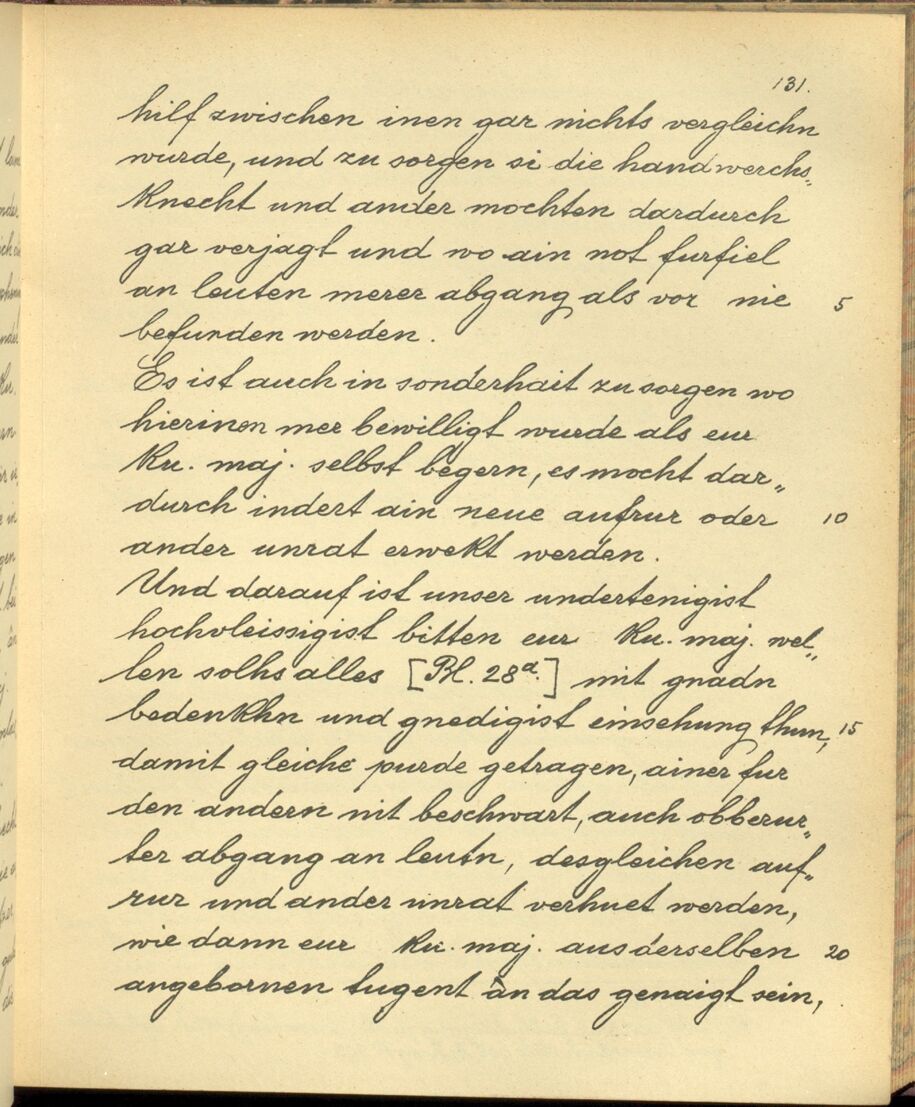 131.
hilf zwischen inen gar nichts vergleichn
wurde, und zu sorgen si die handwerchs„
knecht und ander mochten dardurch
gar verjagt und wo ain not furfiel
an leuten merer abgang als vor nie 5
befunden werden.
Es ist auch in sonderhait zu sorgen wo
hierinen mer bewilligt wurde als eur
ku. maj. selbst begern, es mocht dar„
durch indert ain neue aufrur oder 10
ander unrat erwekt werden.
Und darauf ist unser undertenigist
hochvleissigist bitten eur ku. maj. wel„
len solhs alles [Bl. 28a.] mit gnadn
bedenkhn und gnedigist einsehung thun, 15
damit gleiche purde getragen, ainer fur
den andern nit beschwart, auch obberur„
ter abgang an leutn, desgleichen auf„
rur und ander unrat verhuet werden,
wie dann eur ku. maj. aus derselben 20
angebornen tugent an das genaigt sein,